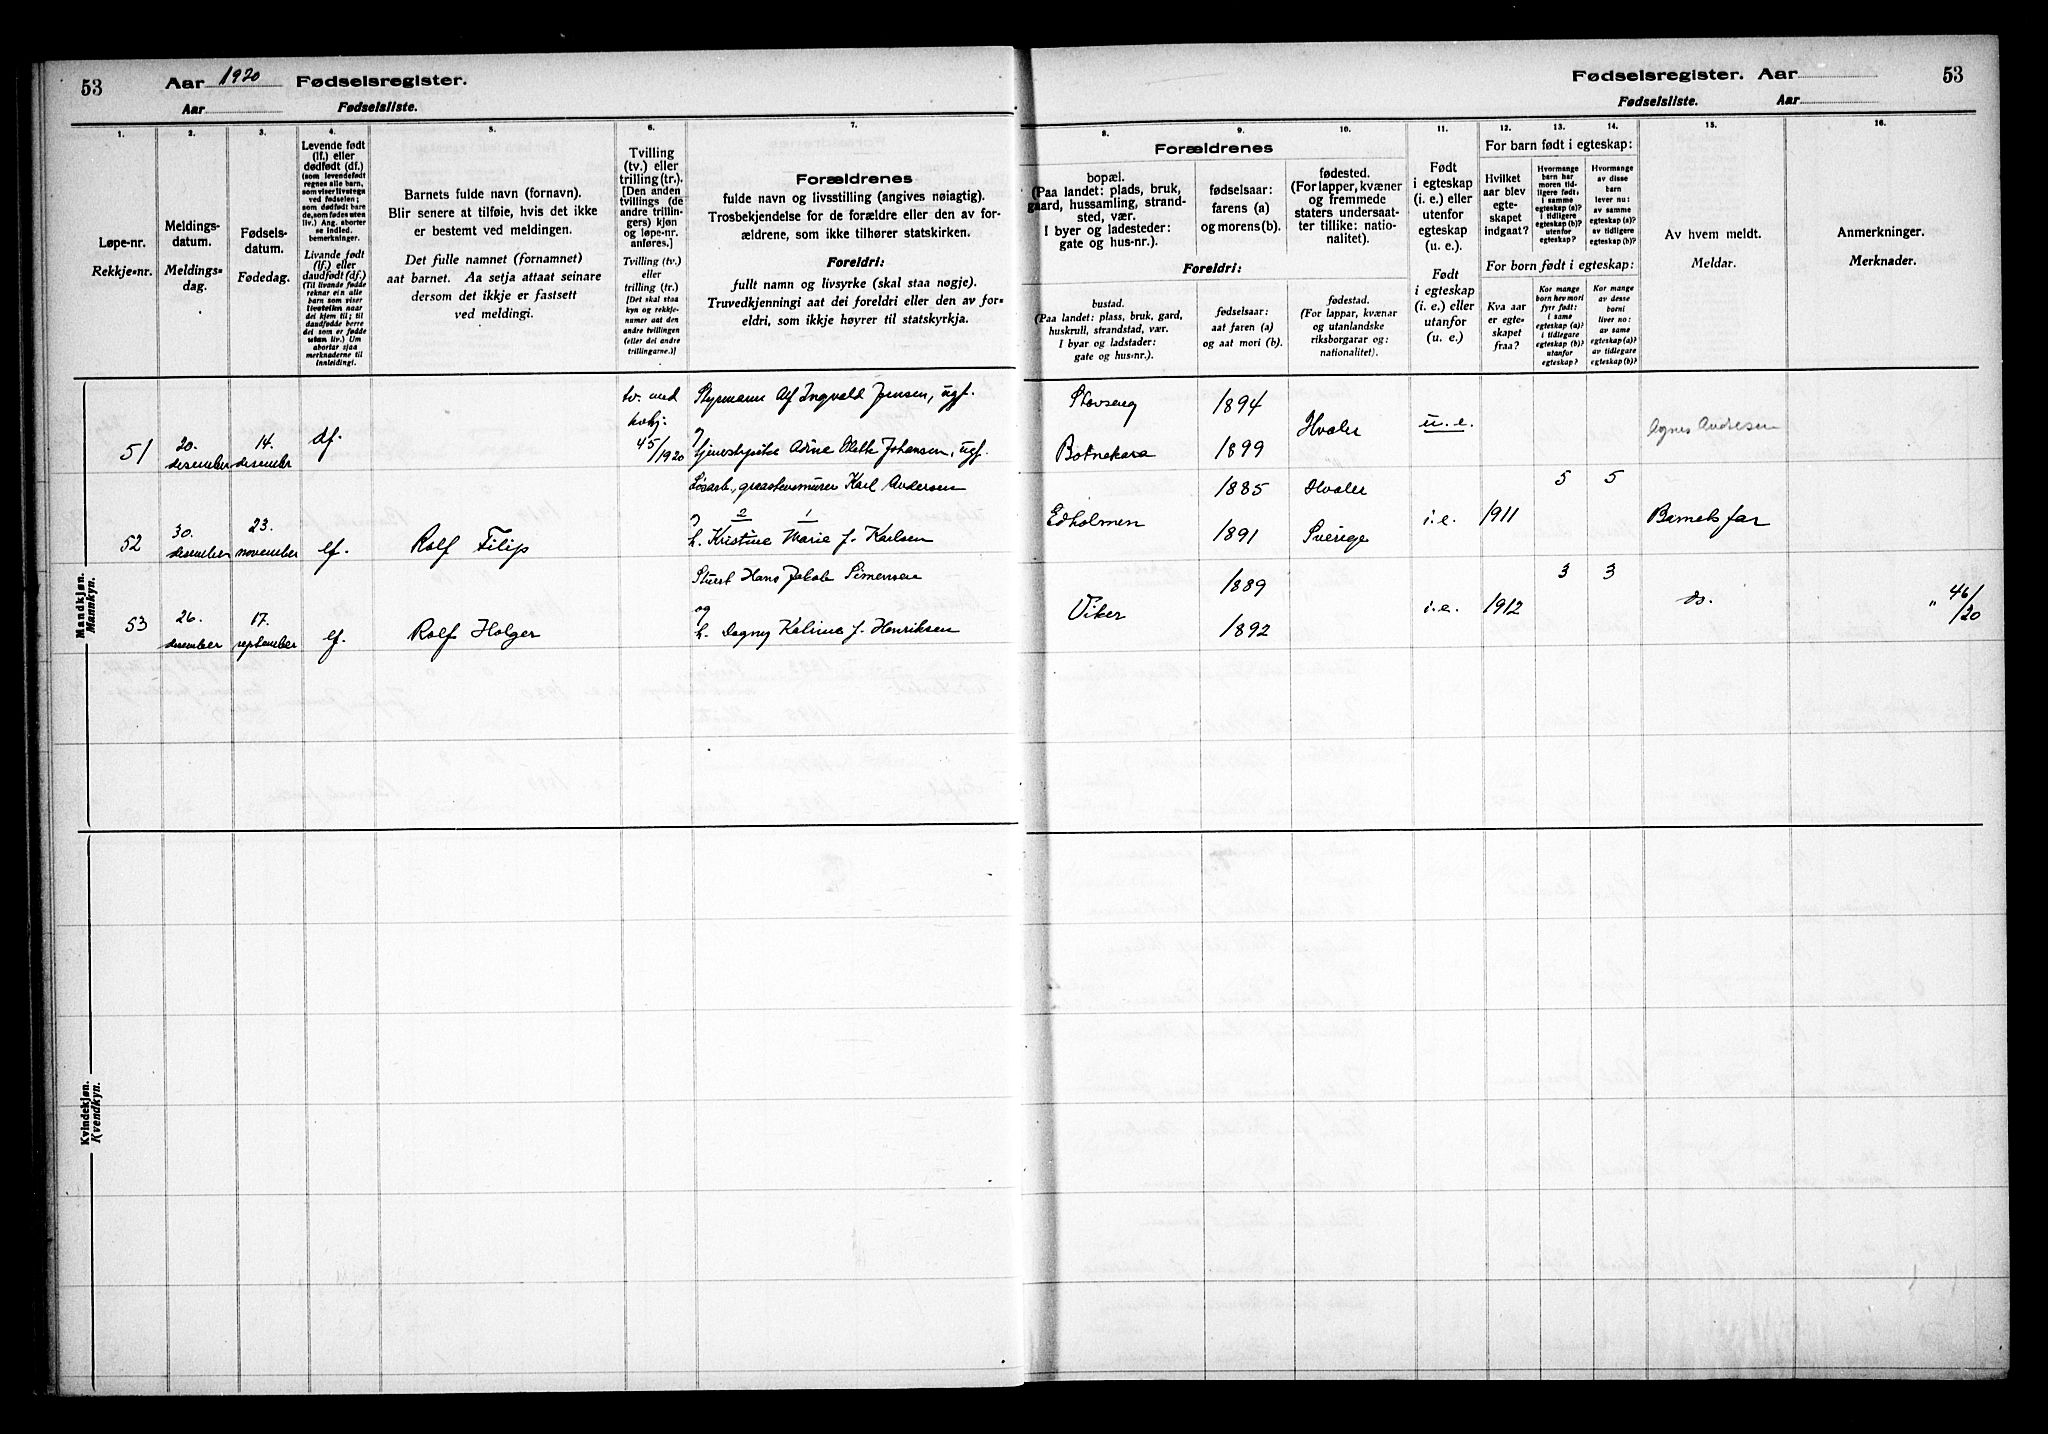 53
Aar 1920 Fødselsregister.
Aar Fødselsliste.
1. 2. 3. 4. 5. 6. 7.
Løpe-nr.
Rekkje-nr.
Meldings-
datum.
Meldings-
dag.
Fødsels-
datum.
Fødedag.
Levende født
(lf.) eller
dødfødt (df.)
(som levendefødt
regnes alle barn,
som viser livstegn
ved fødselen;
som dødfødt bare
de, som fødes uten
liv.) Ang. aborter
se indled.
bemerkninger.
Livande født
(lf.) eller
daudfødt (df.)
(Til livande fødde
reknar ein alle
barn som viser
livsteikn naar
dei kjem til; til
daudfødde berre
dei som er fødde
utan liv.) Um
abortar sjaa
merknaderne til
innleiding!
Barnets fulde navn (fornavn).
Blir senere at tilføie, hvis det ikke
er bestemt ved meldingen.
Det fulle namnet (fornamnet)
aat barnet. Aa setja attaat seinare
dersom det ikkje er fastsett
ved meldingi.
Tvilling
(tv.) eller
trilling (tr.).
[Den anden
tvillings (de
andre trillin-
gers) kjøn
og løpe-nr.
anføres.]
Tvilling (tv.)
eller
trilling (tr.)
[Det skal staa
kyn og rekkje-
numer aat den
andre tvillingen
(eller dei andre
trillingarne.)]
Forældrenes
fulde navn og livsstilling (angives nøiagtig).
Trosbekjendelse for de forældre eller den av for-
ældrene, som ikke tilhører statskirken.
Foreldri:
fullt namn og livsyrke (skal staa nøgje).
Truvedkjenningi aat dei foreldri eller den av for-
eldri, som ikkje høyrer til statskyrkja.
Mandkjøn.
Mannkyn.
51 20. desember 14. desember df. tv. med kvkj. 45/1920
Styrmann Alf Ingvald Jensen, ugf.
og
tjenestepike Adina Olette Johansen, ugf.
52 30. desember 23. november lf. Rolf Filip
Løsarb., graastensmurer Karl Andersen
og 2 1
h. Kristine Marie f. Karlsen
53 26. desember 17. september lf. Rolf Holger
Stuert Hans Jakob Simensen
og
h. Dagny Kalrine f. Henriksen
Kvindekjøn.
Kvendkyn.
Fødselsregister. Aar 53
Fødselsliste. Aar
8. 9. 10. 11. 12. 13. 14. 15. 16.
Forældrenes
bopæl.
(Paa landet: plads, bruk,
gaard, hussamling, strand-
sted, vær.
I byer og ladesteder:
gate og hus-nr.).
fødselsaar:
farens (a)
og morens (b).
fødested.
(For lapper, kvæner
og fremmede
staters undersaat-
ter tillike: natio-
nalitet).
Foreldri:
bustad.
(Paa landet: plass, bruk, gard,
huskrull, strandstad, vær.
I byar og ladstader:
gate og hus-nr.).
fødselsaar:
aat faren (a)
og aat mori (b).
fødestad.
(For lappar, kvænar
og utanlandske
riksborgarar og:
nationalitet).
Født
i egteskap
(i. e.) eller
utenfor
egteskap
(u. e.).
Født
i egteskap
(i. e.) eller
utanfor
(u. e.)
For barn født i egteskap:
Hvilket
aar blev
egte-
skapet
indgaat?
Hvormange
barn har
moren tid-
ligere født:
i samme
egteskap (a)?
i tidligere
egteskap (b)?
utenfor
egteskap?
Hvormange
av disse
barn
lever nu:
av samme
egteskap (a)?
av tidligere
egteskap (b)?
For born født i egteskap:
Kva aar
er egte-
skapet
fraa?
Kor mange
born hev mori
fyrr født:
i same
egteskap (a)?
i tidlegare
egteskap (b)?
utanfor
egteskap?
Kor mange
av desse
borni
liver no:
av same
egteskap (a)?
av tidlegare
egteskap (b)?
Av hvem meldt.
Meldar.
Anmerkninger.
Merknader.
1894
Botnekasa 1899 Hvaler u. e. Agnes Andresen
1885 Hvaler 5 5
Edholmen 1891 Sverige i. e. 1911 Barnets far
1889 3 3
Viker 1892 i. e. 1912 do. " 46/20